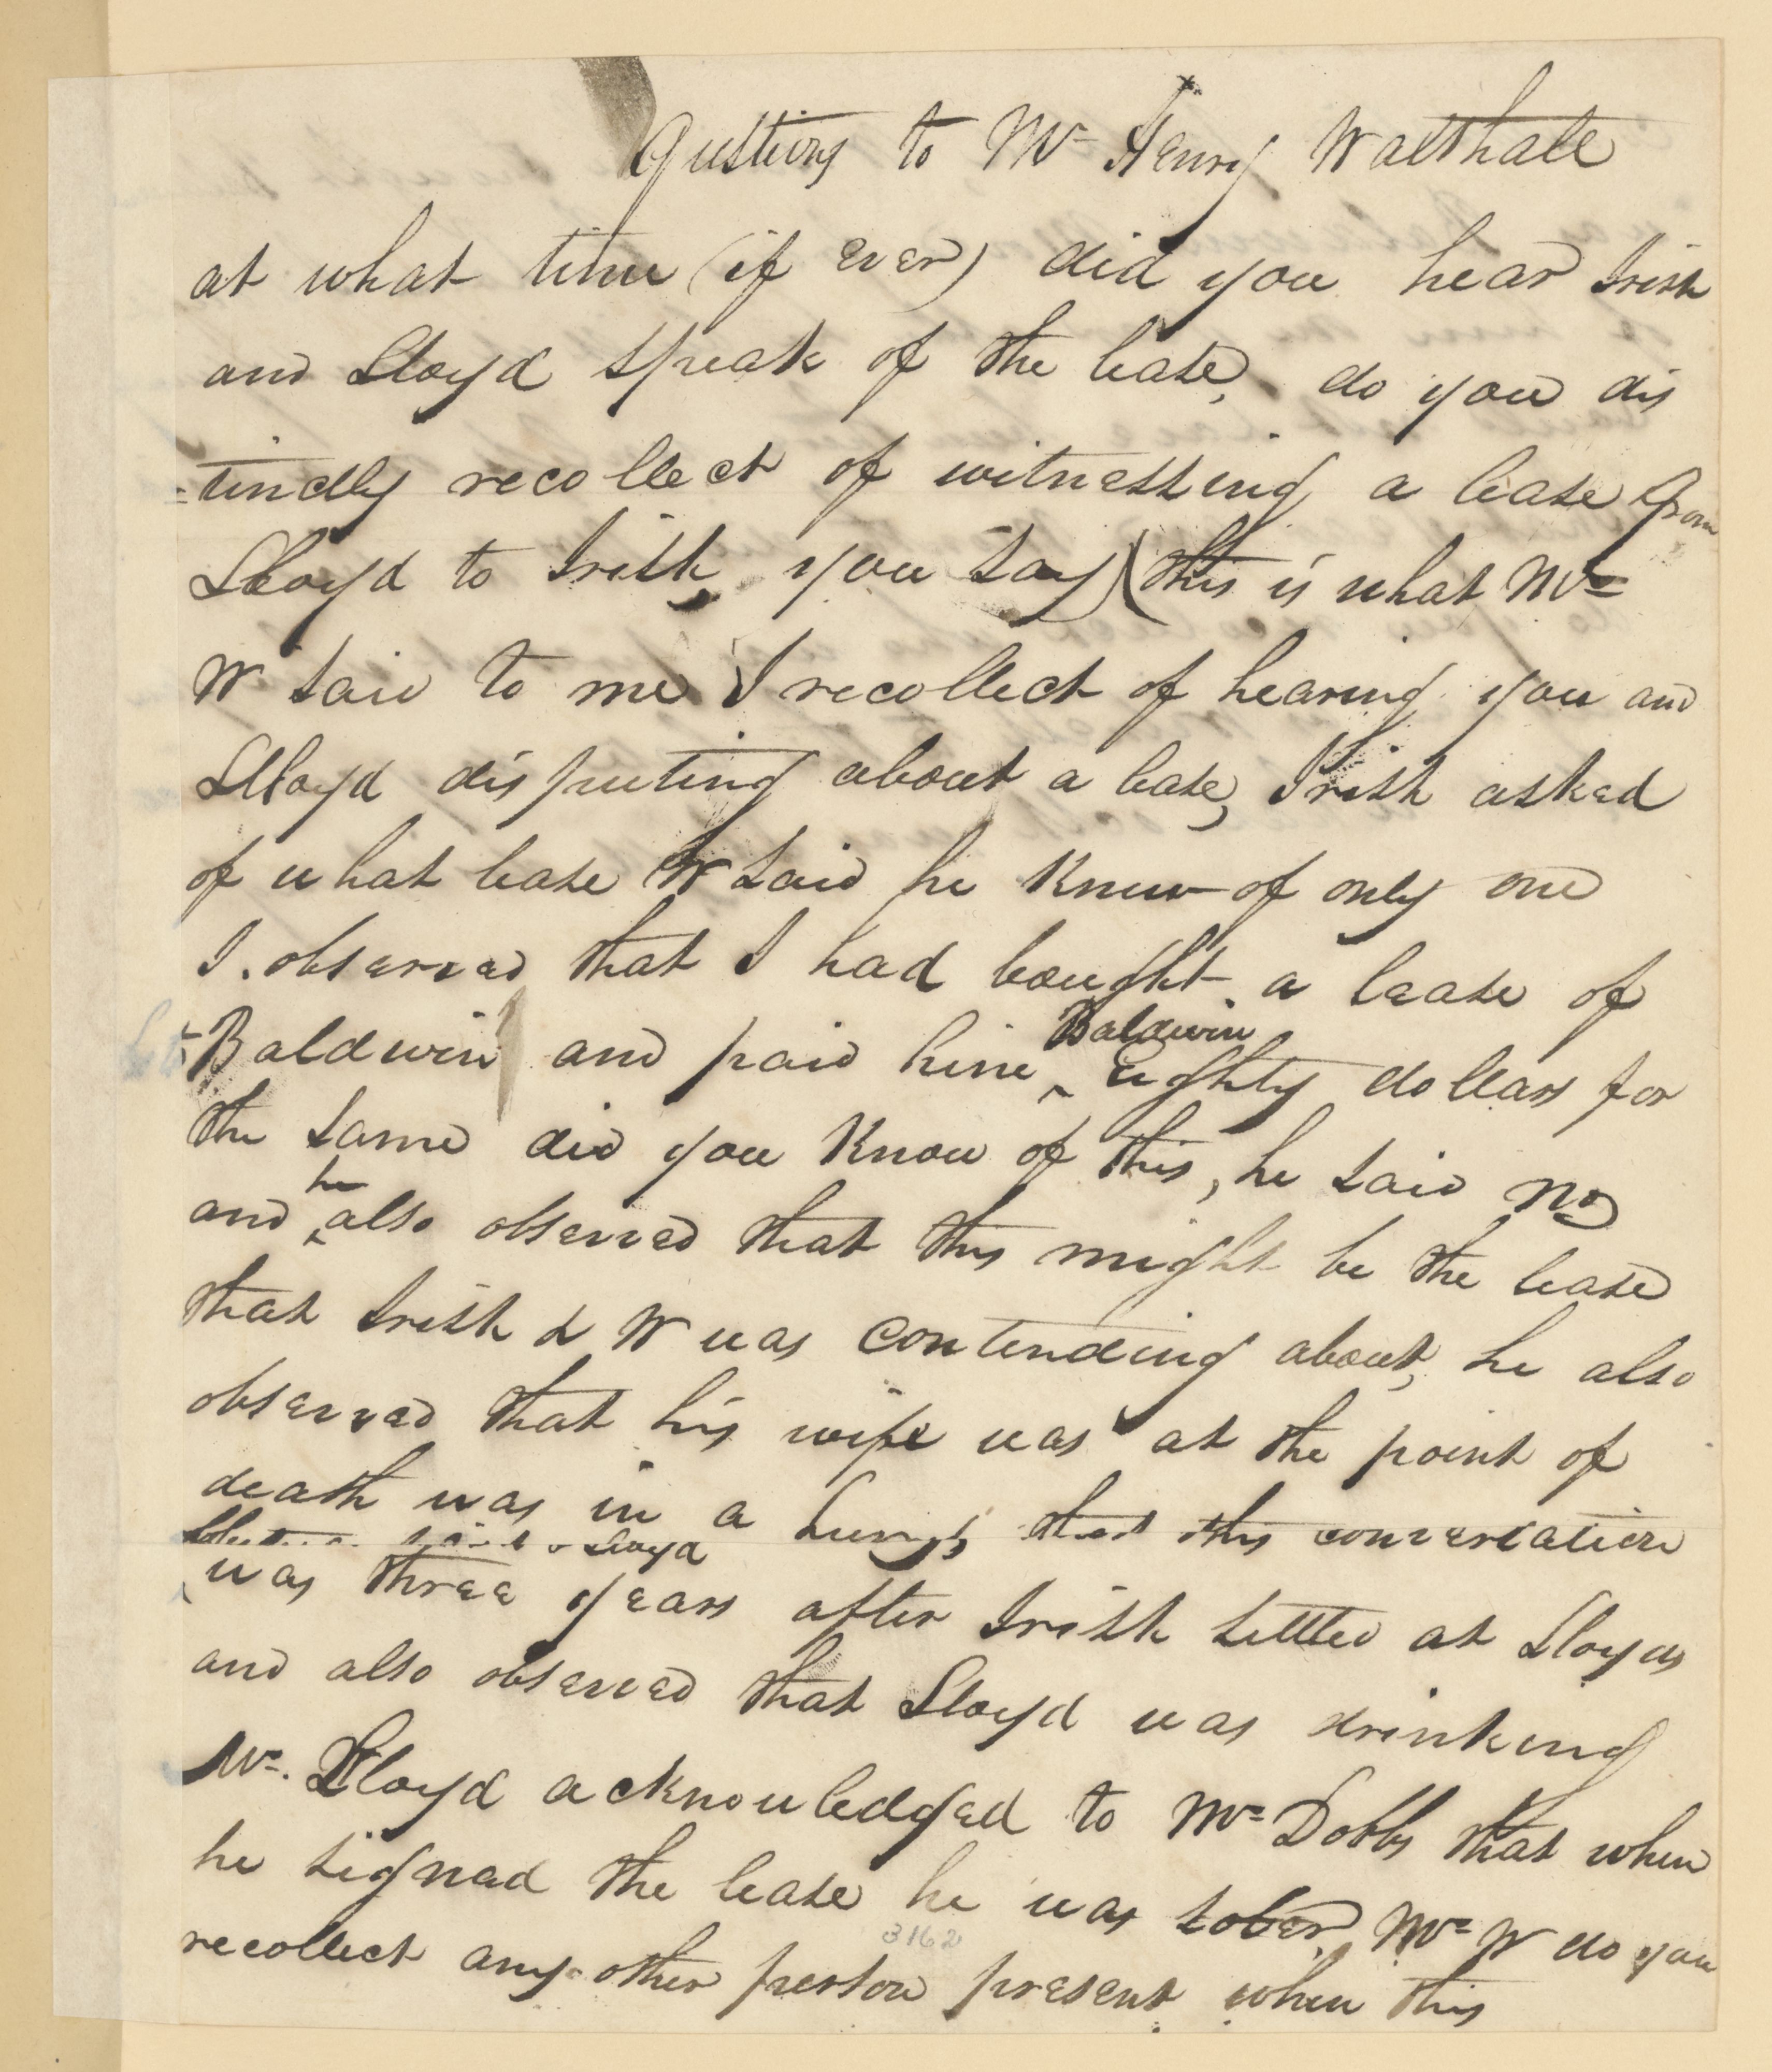 Qustions to Mr Henry Walthall
at what time (if ever) did you hear Irish
and Lloyd speak of the lease, do you dis
=tinctly recollect of witnessing a lease from
Lloyd to Irish, you say (this is what Mr
W said to me I recollect of hearing you and
Lloyd disputing about a lease, Irish asked
of what lease W said he knew of only one
I observed that I had bought a lease of
Baldwin and paid him ^ Baldwin Eighty dollars for
the same did you know of this, he said no
and ^ he also observed that this might be the lease
that Irish & W was contending about, he also
observed that his wife was at the point of
death was in a hurry, that this conversation
between Irish & Lloyd
was three years after Irish settled at Lloyds
and also observed that Lloyd was drinking
Mr. Lloyd acknowledged to Mr Dobbs that when
he signed the lease he was sober, Mr W do you
3162
recollect any other person present when this